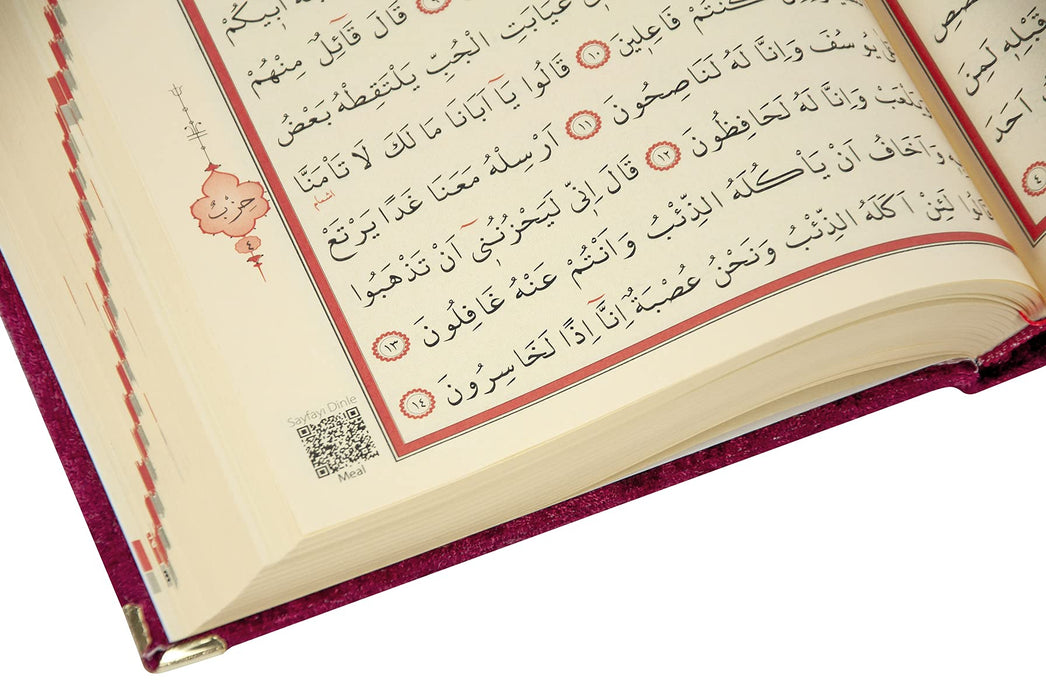 اَبٖيكُمْ
قَالَ قَٓائِلٌ مِنْهُمْ
كُنْتُمْ فَاعِلٖينَ ١٠
غَيَابَتِ الْجُبِّ يَلْتَقِطْهُ بَعْضُ
سُفَ وَاِنَّا لَهُ لَنَاصِحُونَ ١١
قَالُوا يَٓا اَبَانَا مَا لَكَ لَا تَأْمَنَّا
اشمام
وَاِنَّا لَهُ لَحَافِظُونَ ١٢
اَرْسِلْهُ مَعَنَا غَدًا يَرْتَعْ
وَيَلْعَبْ
قَالَ اِنّٖي لَيَحْزُنُنٖٓي اَنْ تَذْهَبُوا
وَاَخَافُ اَنْ يَأْكُلَهُ الذِّئْبُ وَاَنْتُمْ عَنْهُ غَافِلُونَ ١٣
قَالُوا لَئِنْ اَكَلَهُ الذِّئْبُ وَنَحْنُ عُصْبَةٌ اِنَّٓا اِذًا لَخَاسِرُونَ ١٤
حزب
٤
Sayfayı Dinle
Meal
قَبْلِهٖ لَمِنَ
اَحَدَ
٤